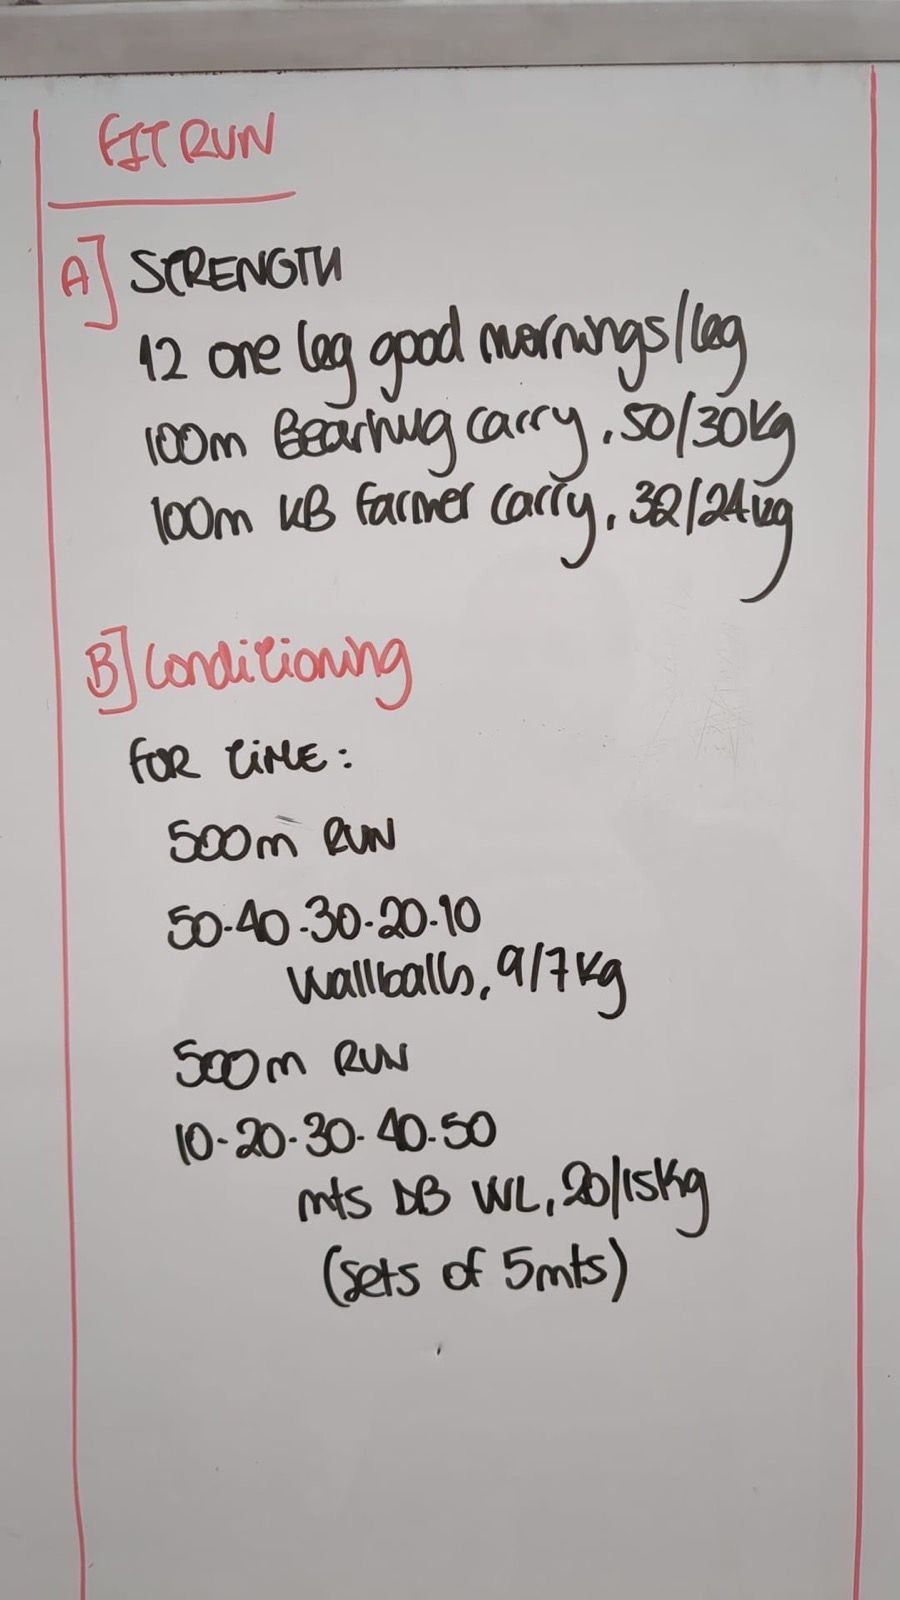 FIT RUN
A] STRENGTH
12 one leg good mornings/leg
100m Bearhug carry, 50/30kg
100m KB farmer carry, 32/24kg
B] Conditioning
FOR TIME:
500m RUN
50-40-30-20-10
Wallballs, 9/7kg
500m RUN
10-20-30-40-50
mts DB WL, 20/15kg
(sets of 5mts)